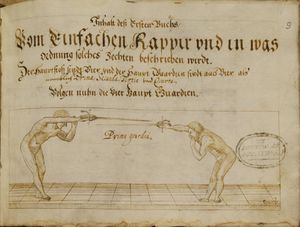 Inhalt deß Ersten Buchs
Vom Einfachen Rappir vnd in was
Ordnung solches Fechten beschriben wirdt.
Der Hauptstöß seindt Vier, vnd der Haupt Guardien seindt auch Vier als
Prima, Secunda, Tertia vnd Quarta.
Volgen nuhn die Vier Haupt Guardien.
Prima guardia